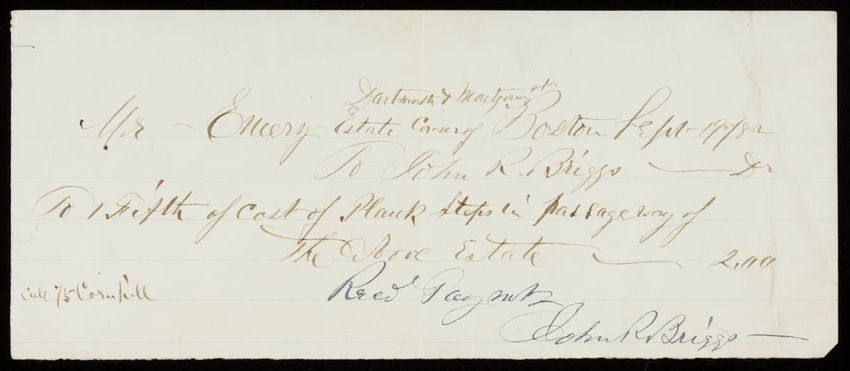 Dartmouth & Montgomery st
Mr Emery Estate Corner of Boston Sept 19/82
To John R. Briggs Dr
To 1 Fifth of Cost of Plank Steps in passageway of
The Above Estate 2.00
Call 75 Cornhill
Recd Paymt
John R. Briggs